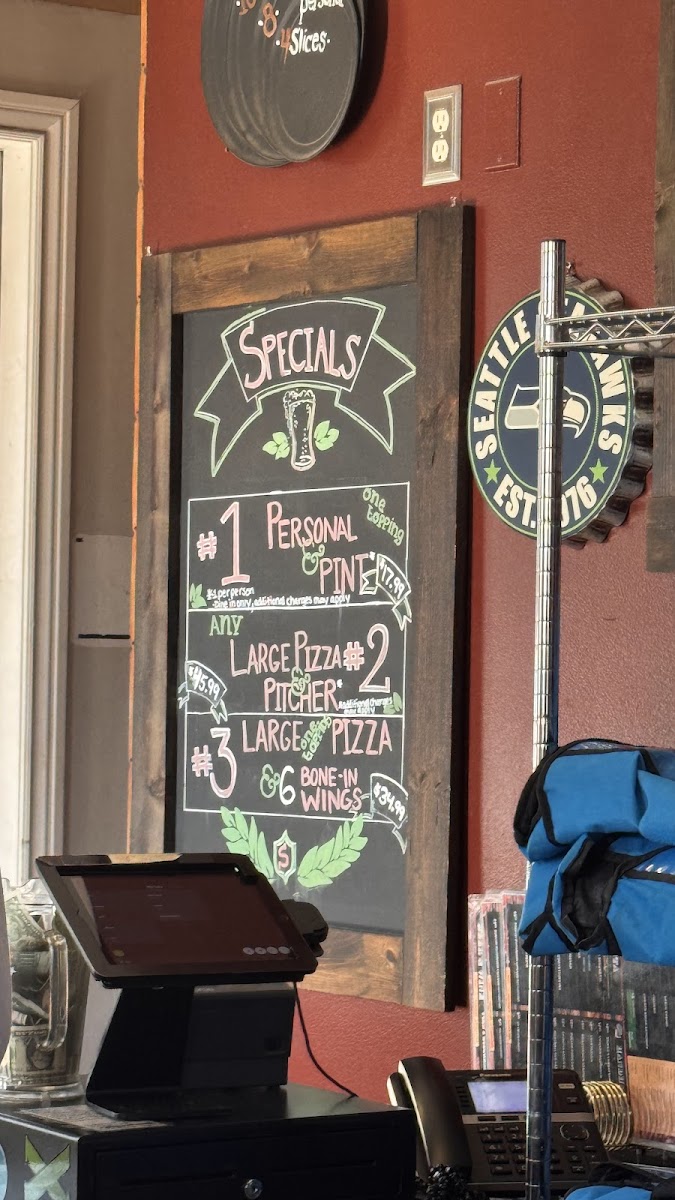 personal
8.
4 Slices.
SPECIALS
#1 PERSONAL
one topping
& PINT*
$17.99
*$1 per person
-Dine in only, additional charges may apply
ANY
LARGE PIZZA #2
&
PITCHER*
*additional charges may apply
#3 LARGE one topping PIZZA
& 6 BONE-IN WINGS
$34.99
S
SEATTLE
HAWKS
EST.